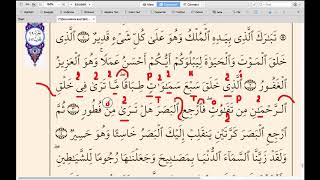 تَبَٰرَكَ ٱلَّذِى بِيَدِهِ ٱلْمُلْكُ وَهُوَ عَلَىٰ كُلِّ شَىْءٍ قَدِيرٌ ٱلَّذِى
خَلَقَ ٱلْمَوْتَ وَٱلْحَيَوٰةَ لِيَبْلُوَكُمْ أَيُّكُمْ أَحْسَنُ عَمَلًا وَهُوَ ٱلْعَزِيزُ
ٱلْغَفُورُ ٱلَّذِى خَلَقَ سَبْعَ سَمَٰوَٰتٍ طِبَاقًا مَّا تَرَىٰ فِى خَلْقِ
ٱلرَّحْمَٰنِ مِن تَفَٰوُتٍ فَٱرْجِعِ ٱلْبَصَرَ هَلْ تَرَىٰ مِن فُطُورٍ ثُمَّ
ٱرْجِعِ ٱلْبَصَرَ كَرَّتَيْنِ يَنقَلِبْ إِلَيْكَ ٱلْبَصَرُ خَاسِئًا وَهُوَ حَسِيرٌ
وَلَقَدْ زَيَّنَّا ٱلسَّمَآءَ ٱلدُّنْيَا بِمَصَٰبِيحَ وَجَعَلْنَٰهَا رُجُومًا لِّلشَّيَٰطِينِ